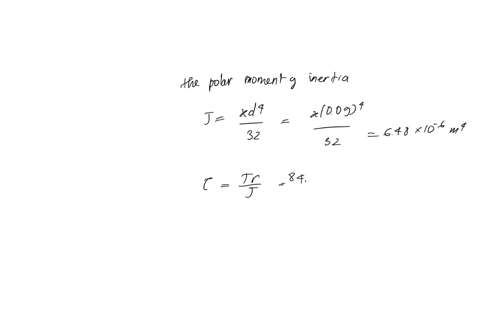 the polar moment g inertia
J = xd⁴/32 = x(0.09)⁴/32 = 6.48 × 10⁻⁶ m⁴
τ = Tr/J = 84.